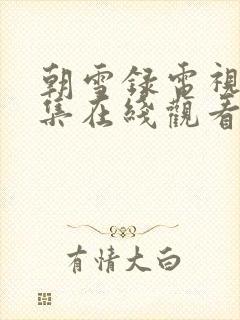 朝雪録電視
集在綫觀看
有情大白